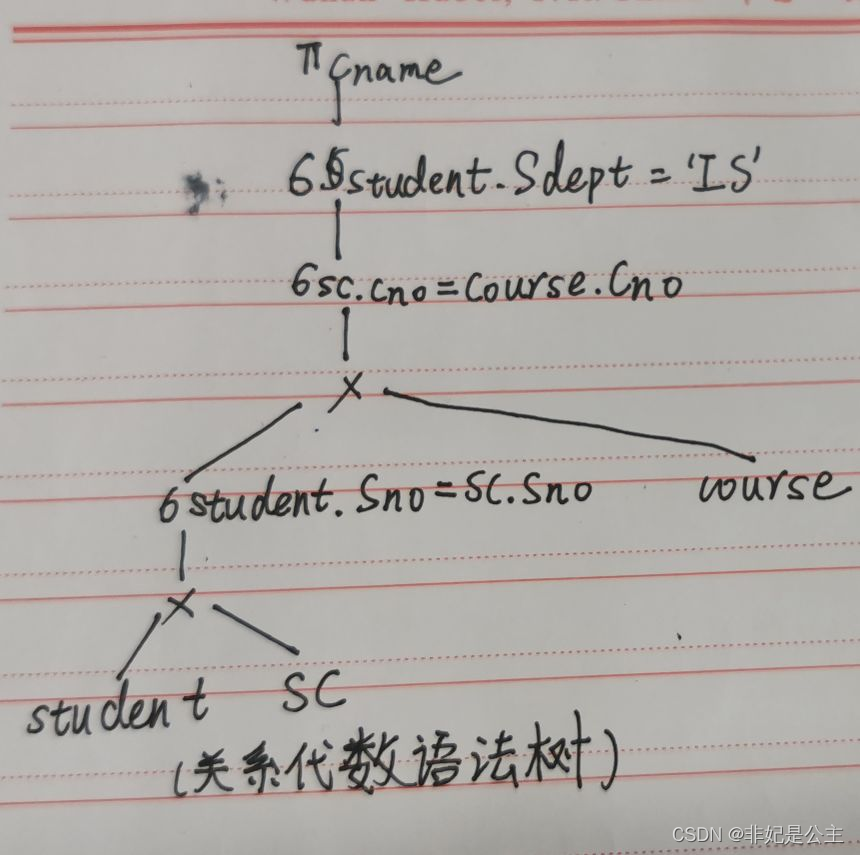 π Cname
6 student.Sdept = 'IS'
6sc.cno=Course.Cno
×
6student.Sno=SC.Sno course
×
student SC
(关系代数语法树)
CSDN @非妃是公主